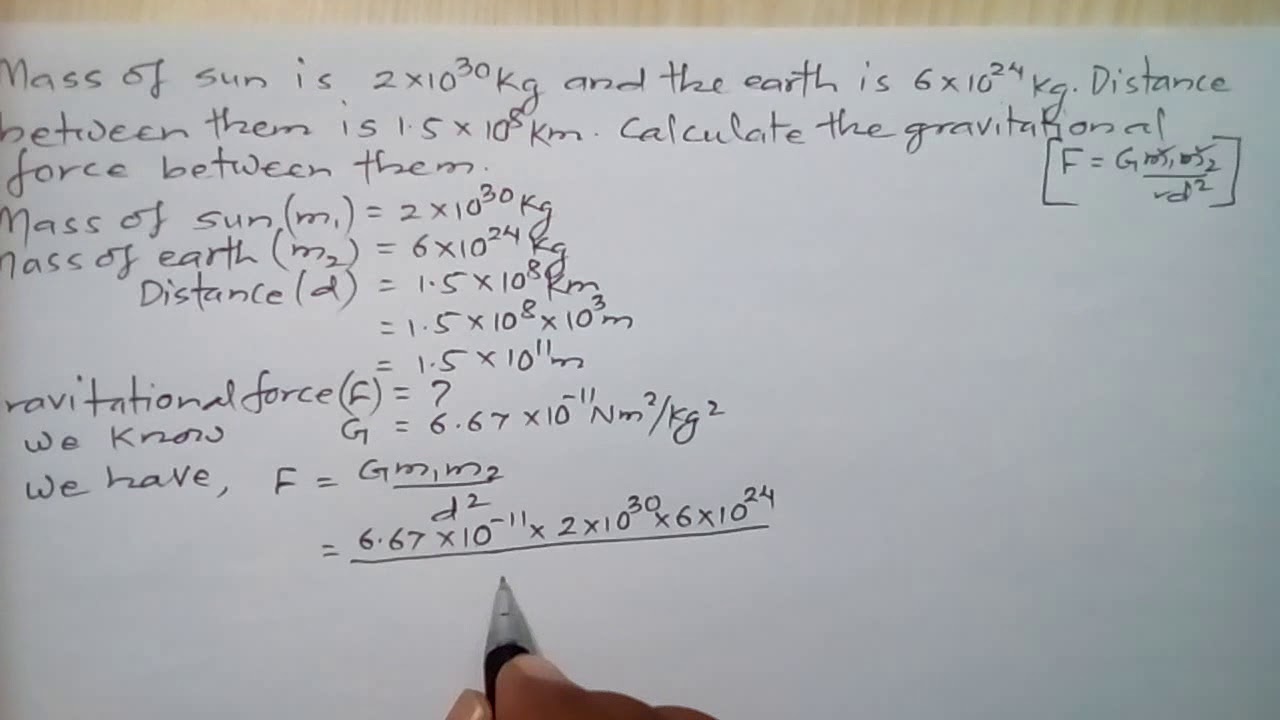 Mass of sun is 2×10³⁰ kg and the earth is 6×10²⁴ kg. Distance
between them is 1.5×10⁸ km. Calculate the gravitational
force between them.
[F = Gm₁m₂/d²]
Mass of sun (m₁) = 2×10³⁰ kg
Mass of earth (m₂) = 6×10²⁴ kg
Distance (d) = 1.5×10⁸ km
= 1.5×10⁸×10³ m
= 1.5×10¹¹ m
ravitational force (F) = ?
we know G = 6.67×10⁻¹¹ Nm²/kg²
we have, F = Gm₁m₂/d²
= 6.67×10⁻¹¹ × 2×10³⁰ × 6×10²⁴